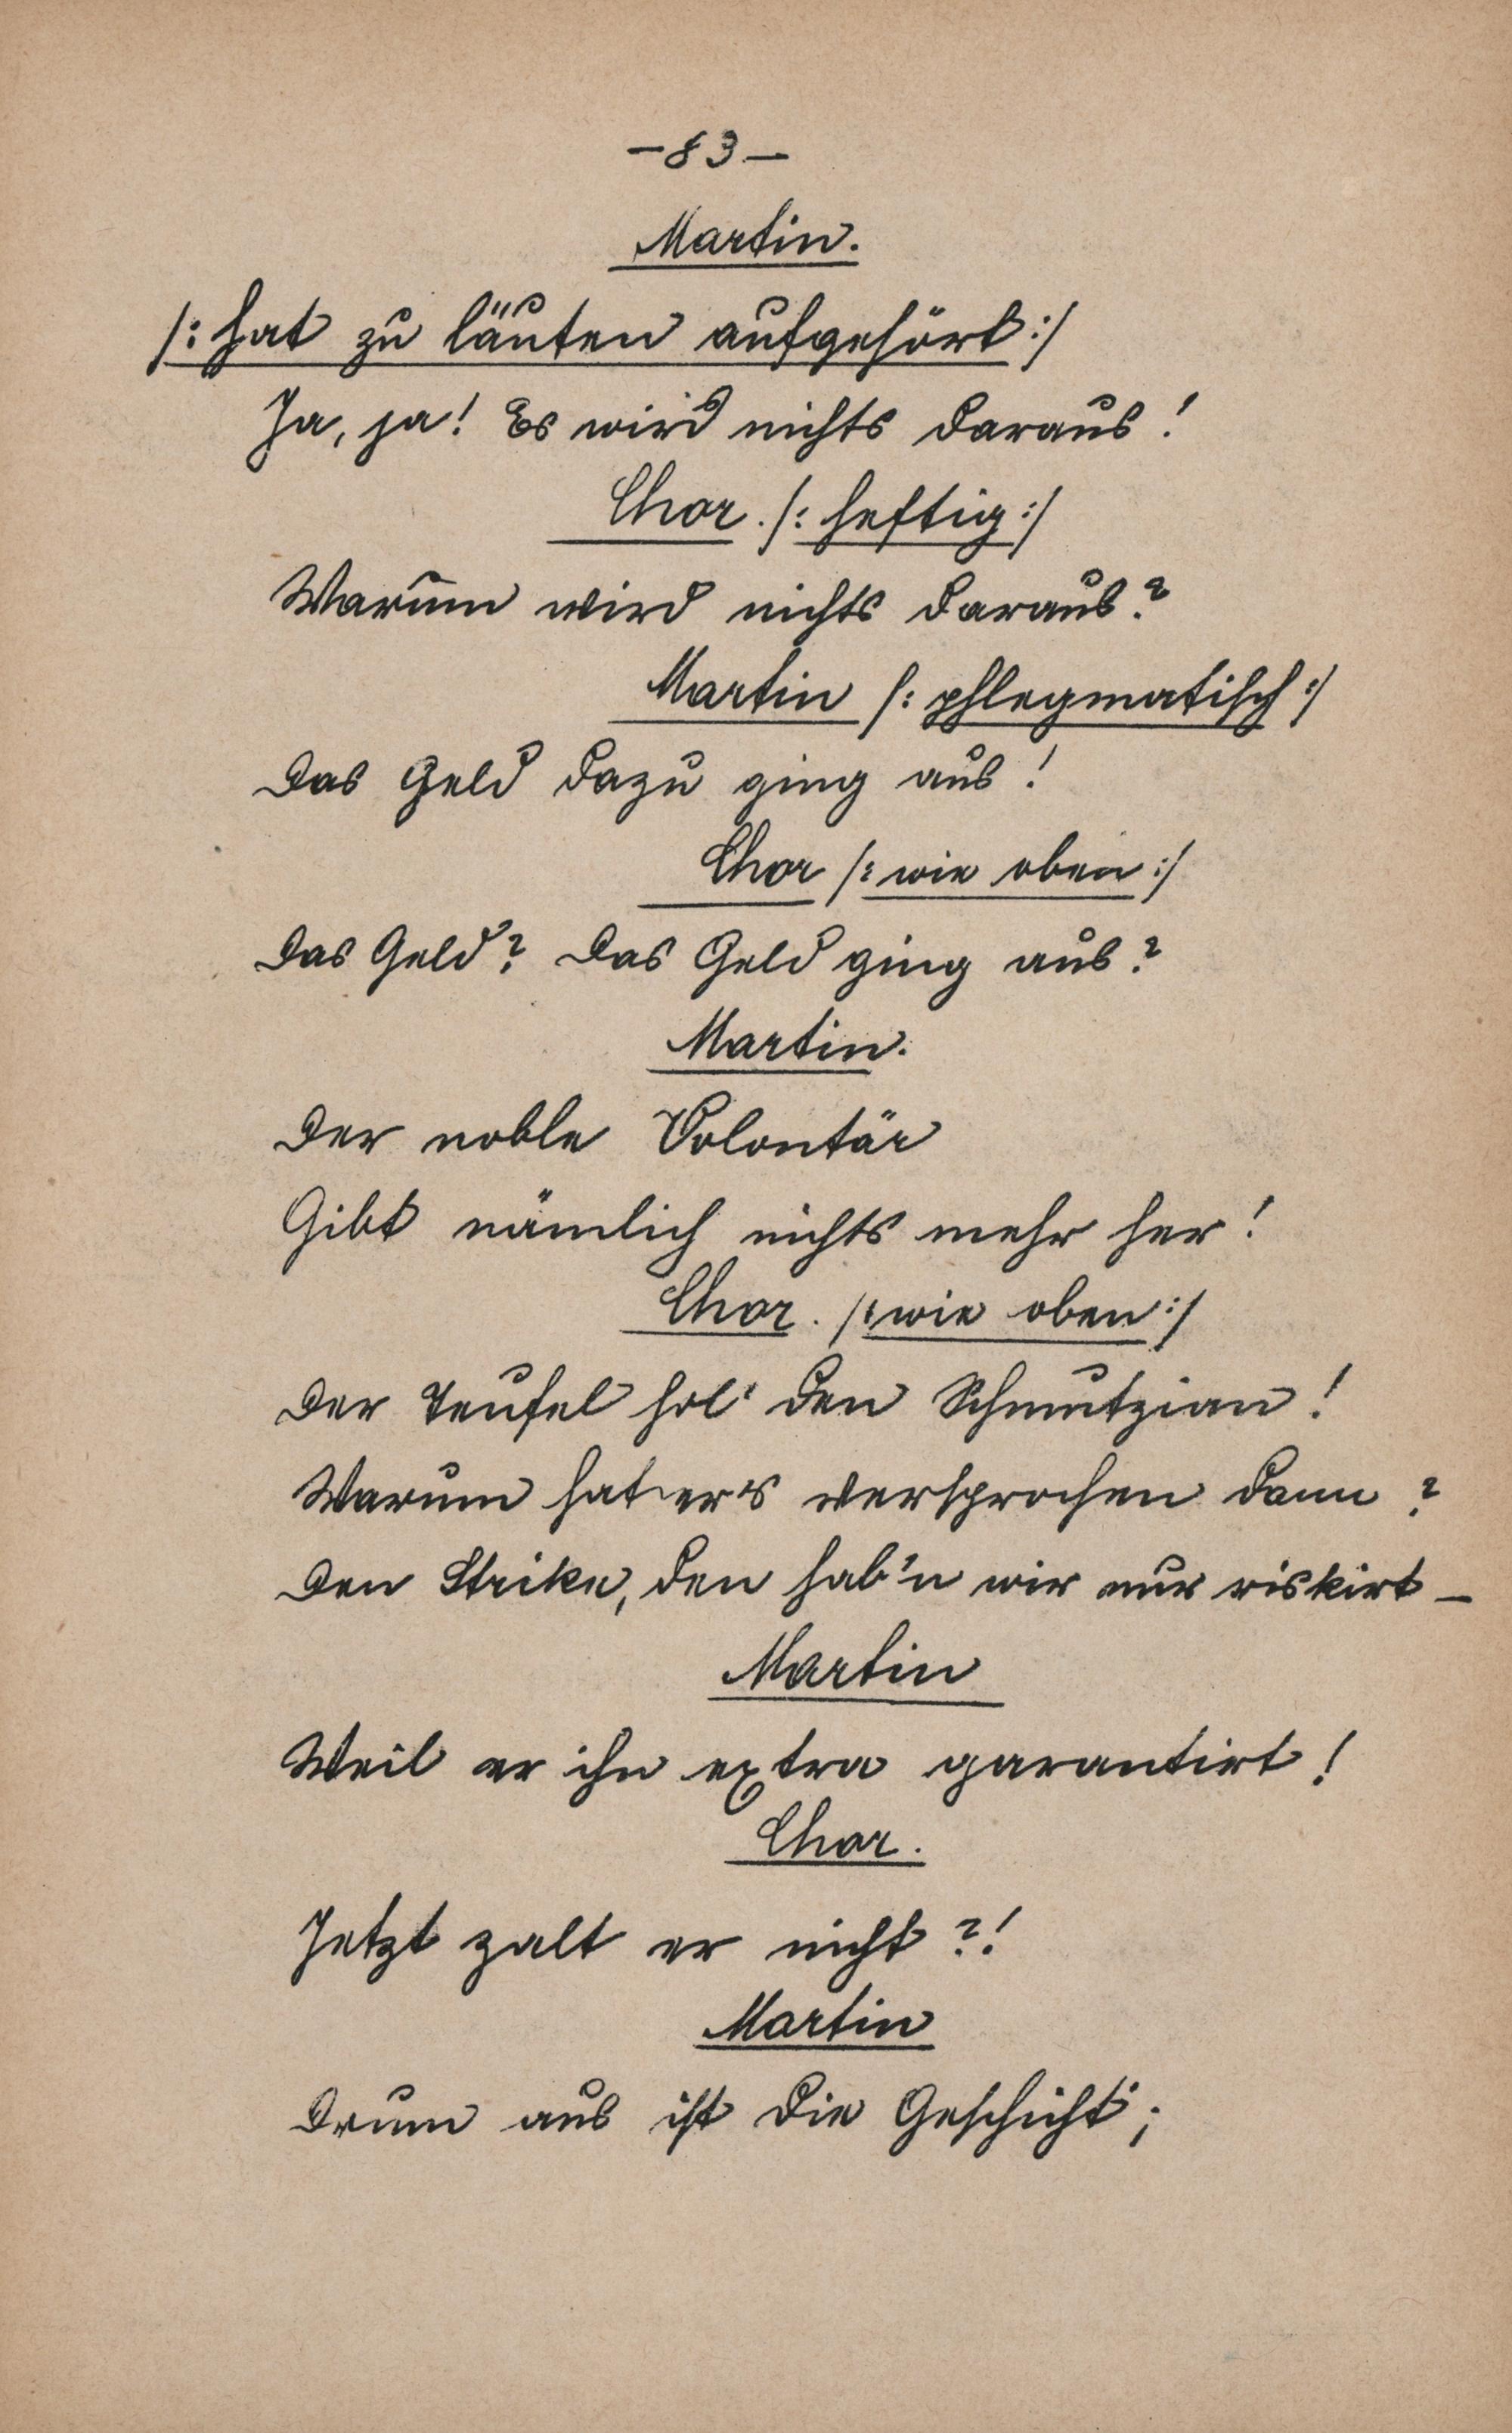 - 83 -
Martin.
/: hat zu läuten aufgehört :/
Ja, ja! Es wird nichts daraus!
Chor. /: heftig :/
Warum wird nichts daraus?
Martin /: phlegmatisch :/
Das Geld dazu ging aus!
Chor /: wie oben :/
Das Geld? Das Geld ging aus?
Martin.
Der noble Volontär
Gibt nämlich nichts mehr her!
Chor. /: wie oben :/
Der Teufel hol' den Schmutzian!
Warum hat er's versprochen dann?
Den Strike, den hab'n wir nur riskirt –
Martin
Weil er ihn extra garantirt!
Chor.
Jetzt zalt er nicht?!
Martin
Drum aus ist die Geschicht';